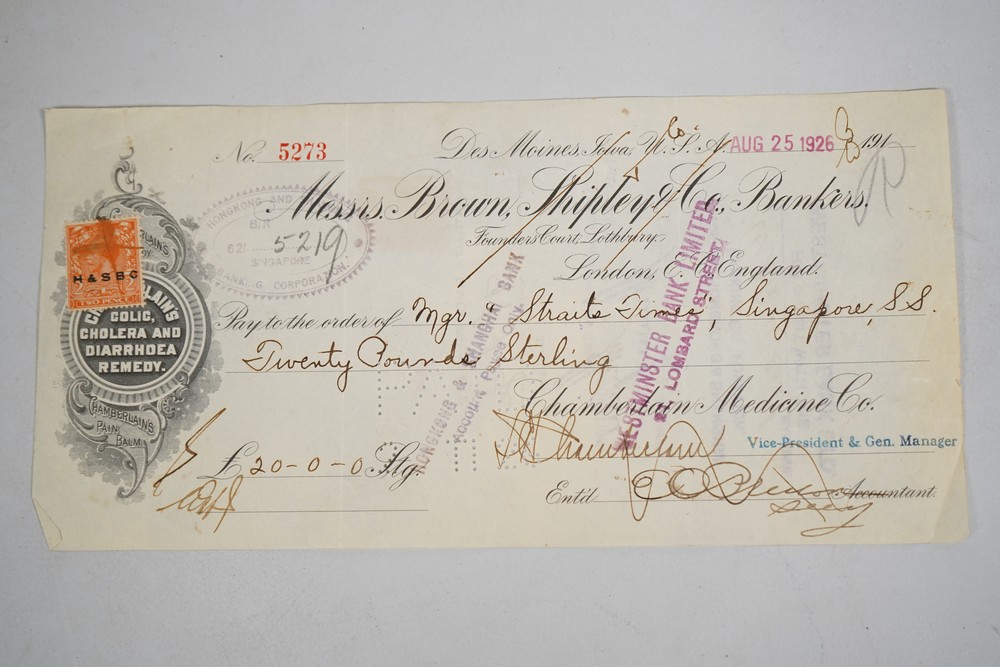 No. 5273
Des Moines, Iowa, U. S. A. AUG 25 1926 191
Messrs. Brown, Shipley & Co., Bankers.
Founders Court, Lothbury,
London, E. C. England.
HONGKONG AND
B/R
62/ 5219
SINGAPORE
BANKING CORPORATION.
H & S B C
TWO PENCE
CHAMBERLAIN'S
COLIC,
CHOLERA AND
DIARRHOEA
REMEDY.
CHAMBERLAIN'S
PAIN
BALM
Pay to the order of Mgr. Straits Times, Singapore, S.S.
Twenty Pounds Sterling
HONGKONG & SHANGHAI BANK
ACCOUNT PAYEE ONLY.
WESTMINSTER BANK LIMITED
21 LOMBARD STREET
Chamberlain Medicine Co.
D Chamberlain
Vice-President & Gen. Manager
£ 20-0-0 Stg.
Ent'd
Accountant.
Secy